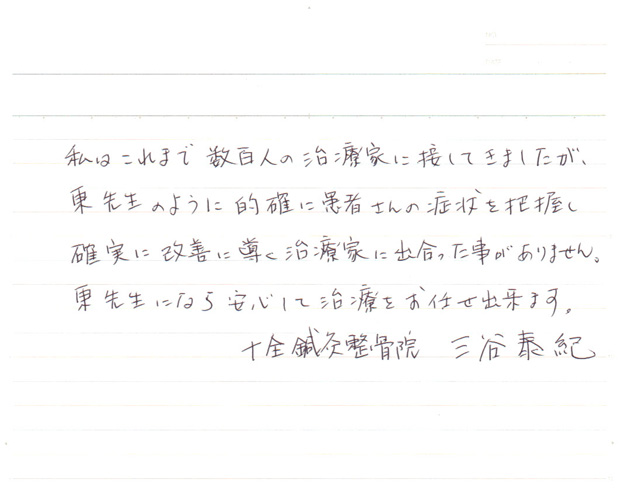 私はこれまで数百人の治療家に接してきましたが、
東先生のように的確に患者さんの症状を把握し
確実に改善に導く治療家に出合った事がありません。
東先生になら安心して治療をお任せ出来ます。
十全鍼灸整骨院 三谷泰紀